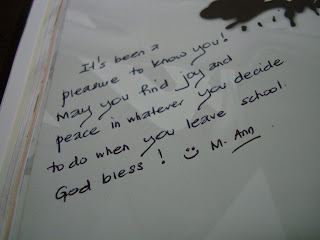 It's been a
pleasure to know you!
May you find joy and
peace in whatever you decide
to do when you leave school.
God bless! ☺ M. Ann